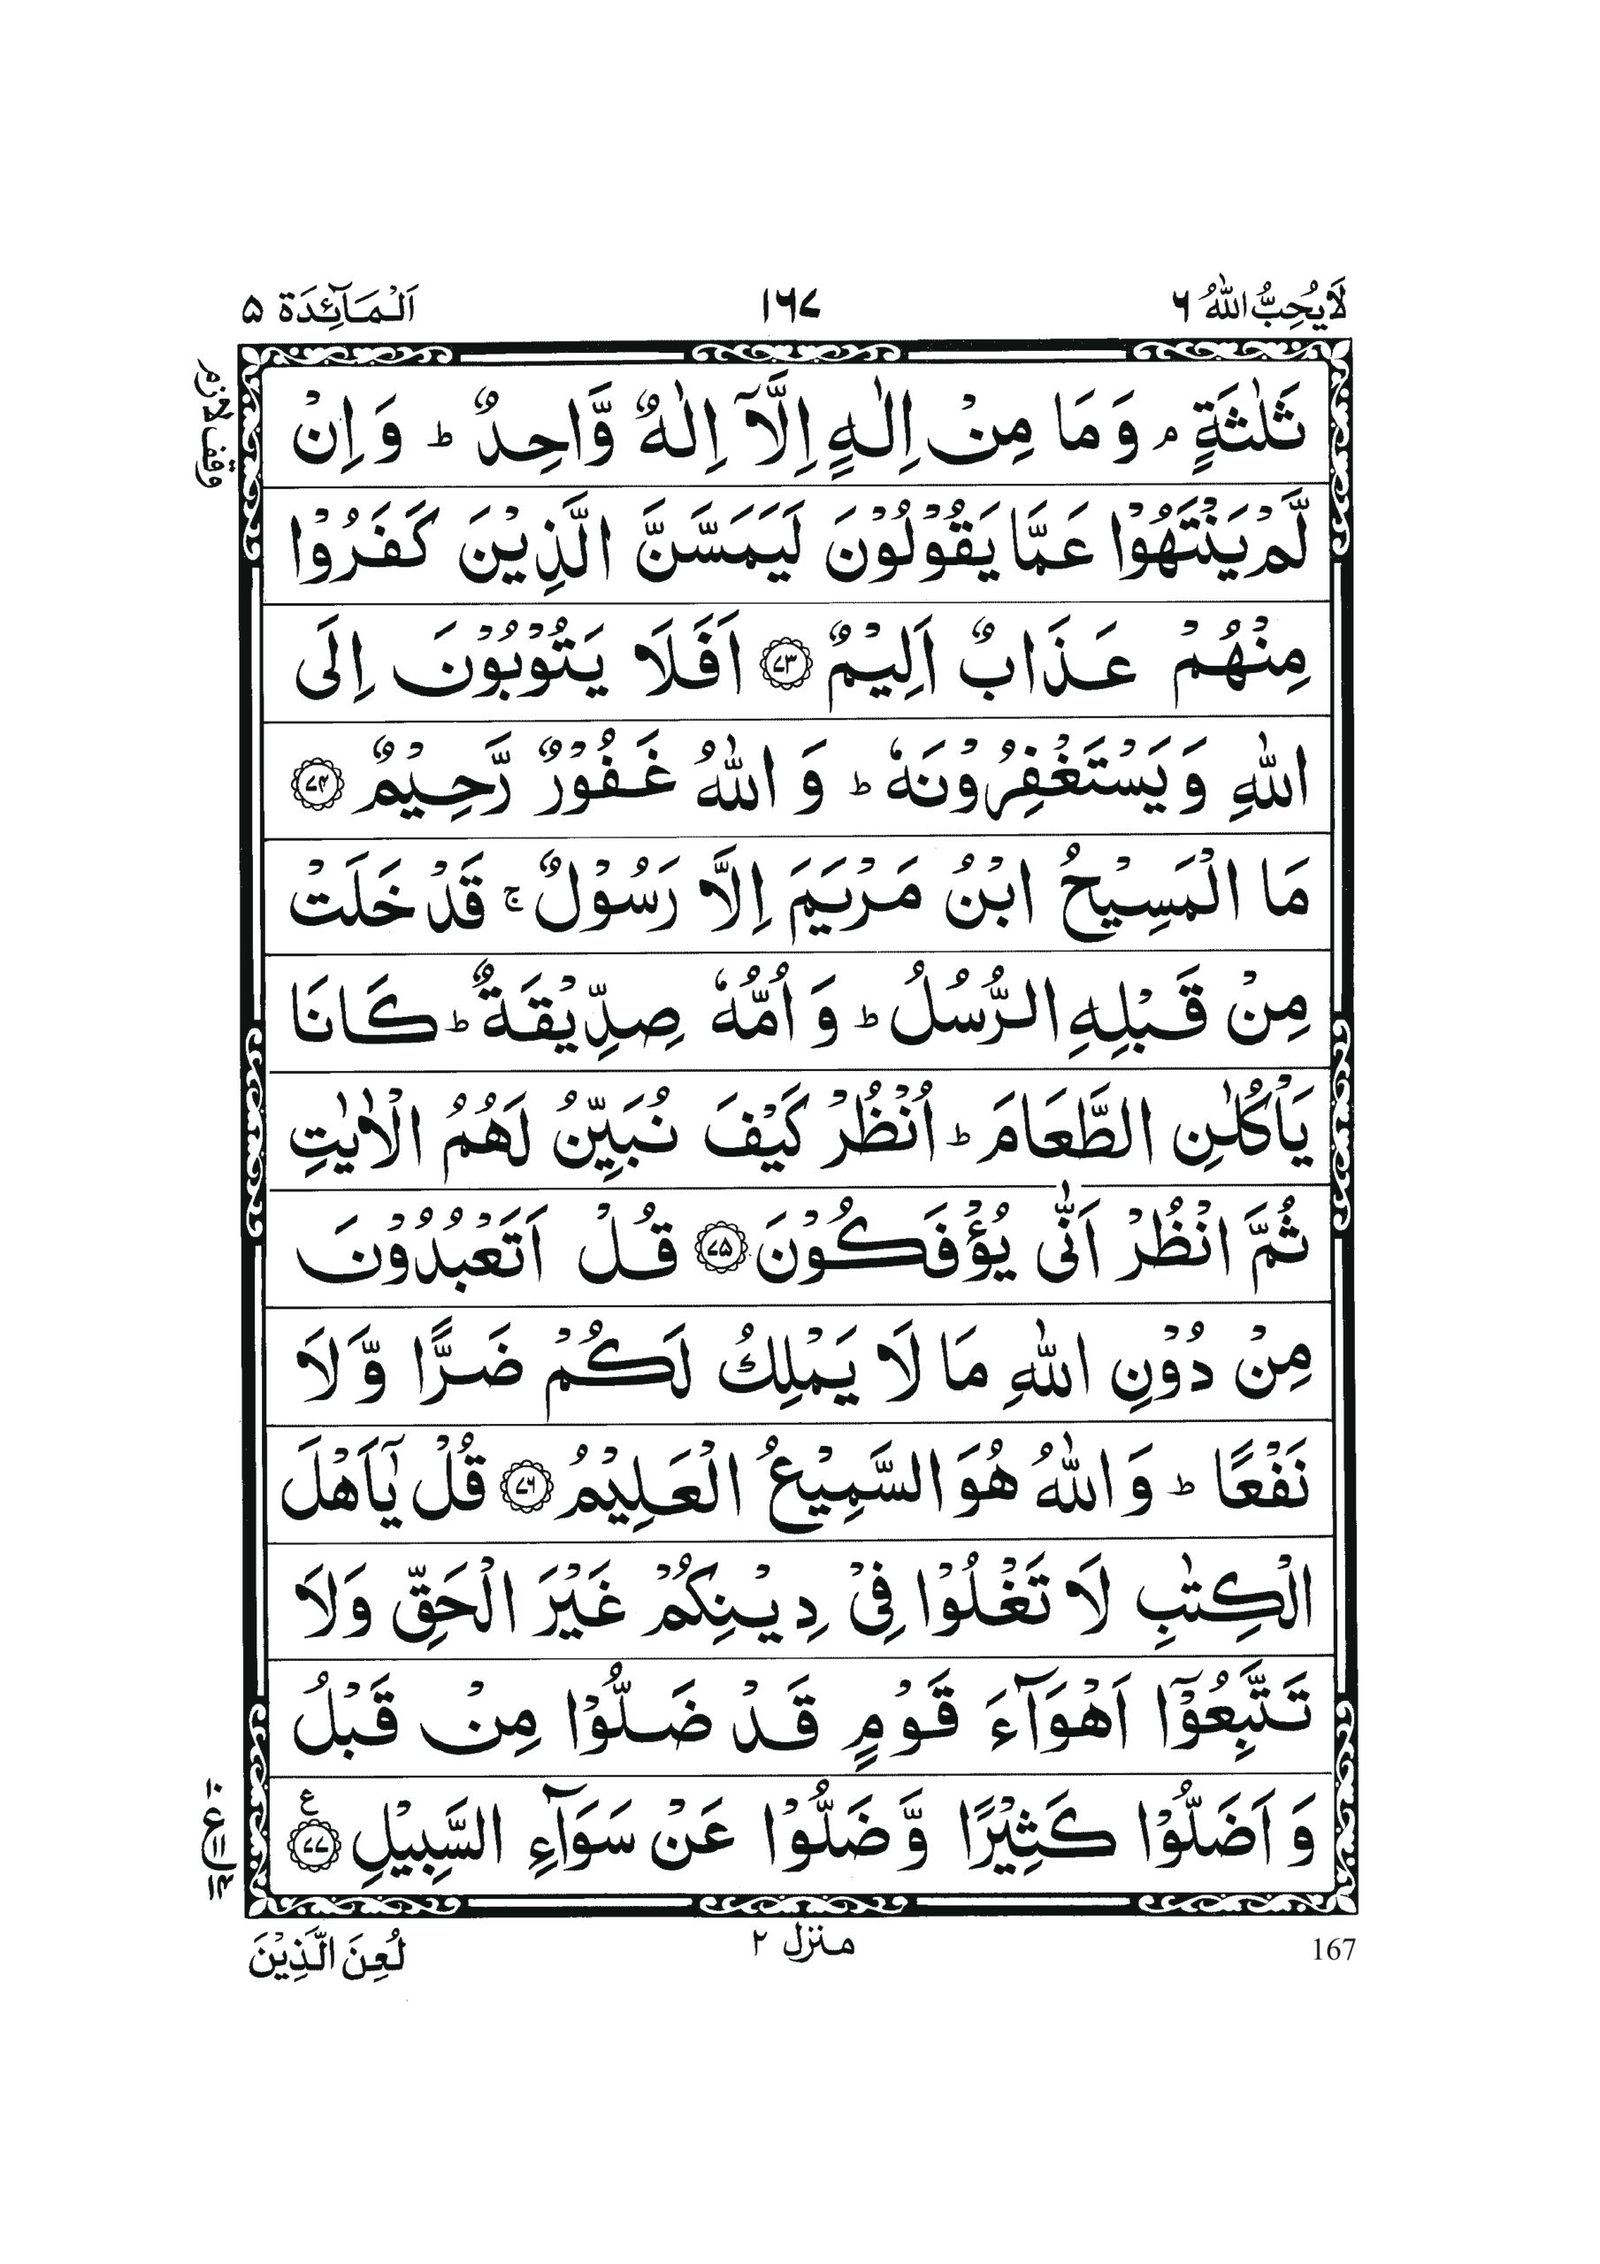 لَا يُحِبُّ اللّٰهُ ٦ ١٦٧ اَلْمَآئِدَة ۵
وقف لازم
ثَلٰثَةٍ ۘ وَمَا مِنْ اِلٰهٍ اِلَّاۤ اِلٰهٌ وَّاحِدٌ ؕ وَاِنْ
لَّمْ يَنْتَهُوْا عَمَّا يَقُوْلُوْنَ لَيَمَسَّنَّ الَّذِيْنَ كَفَرُوْا
مِنْهُمْ عَذَابٌ اَلِيْمٌ ﴿۷۳﴾ اَفَلَا يَتُوْبُوْنَ اِلَى
اللّٰهِ وَيَسْتَغْفِرُوْنَهٗ ؕ وَاللّٰهُ غَفُوْرٌ رَّحِيْمٌ ﴿۷۴﴾
مَا الْمَسِيْحُ ابْنُ مَرْيَمَ اِلَّا رَسُوْلٌ ۚ قَدْ خَلَتْ
مِنْ قَبْلِهِ الرُّسُلُ ؕ وَاُمُّهٗ صِدِّيْقَةٌ ؕ كَانَا
يَاْكُلٰنِ الطَّعَامَ ؕ اُنْظُرْ كَيْفَ نُبَيِّنُ لَهُمُ الْاٰيٰتِ
ثُمَّ انْظُرْ اَنّٰى يُؤْفَكُوْنَ ﴿۷۵﴾ قُلْ اَتَعْبُدُوْنَ
مِنْ دُوْنِ اللّٰهِ مَا لَا يَمْلِكُ لَكُمْ ضَرًّا وَّلَا
نَفْعًا ؕ وَاللّٰهُ هُوَ السَّمِيْعُ الْعَلِيْمُ ﴿۷۶﴾ قُلْ يٰۤاَهْلَ
الْكِتٰبِ لَا تَغْلُوْا فِيْ دِيْنِكُمْ غَيْرَ الْحَقِّ وَلَا
تَتَّبِعُوْۤا اَهْوَآءَ قَوْمٍ قَدْ ضَلُّوْا مِنْ قَبْلُ
وَاَضَلُّوْا كَثِيْرًا وَّضَلُّوْا عَنْ سَوَآءِ السَّبِيْلِ ﴿۷۷﴾ ع
لُعِنَ الَّذِيْنَ منزل ۲ 167